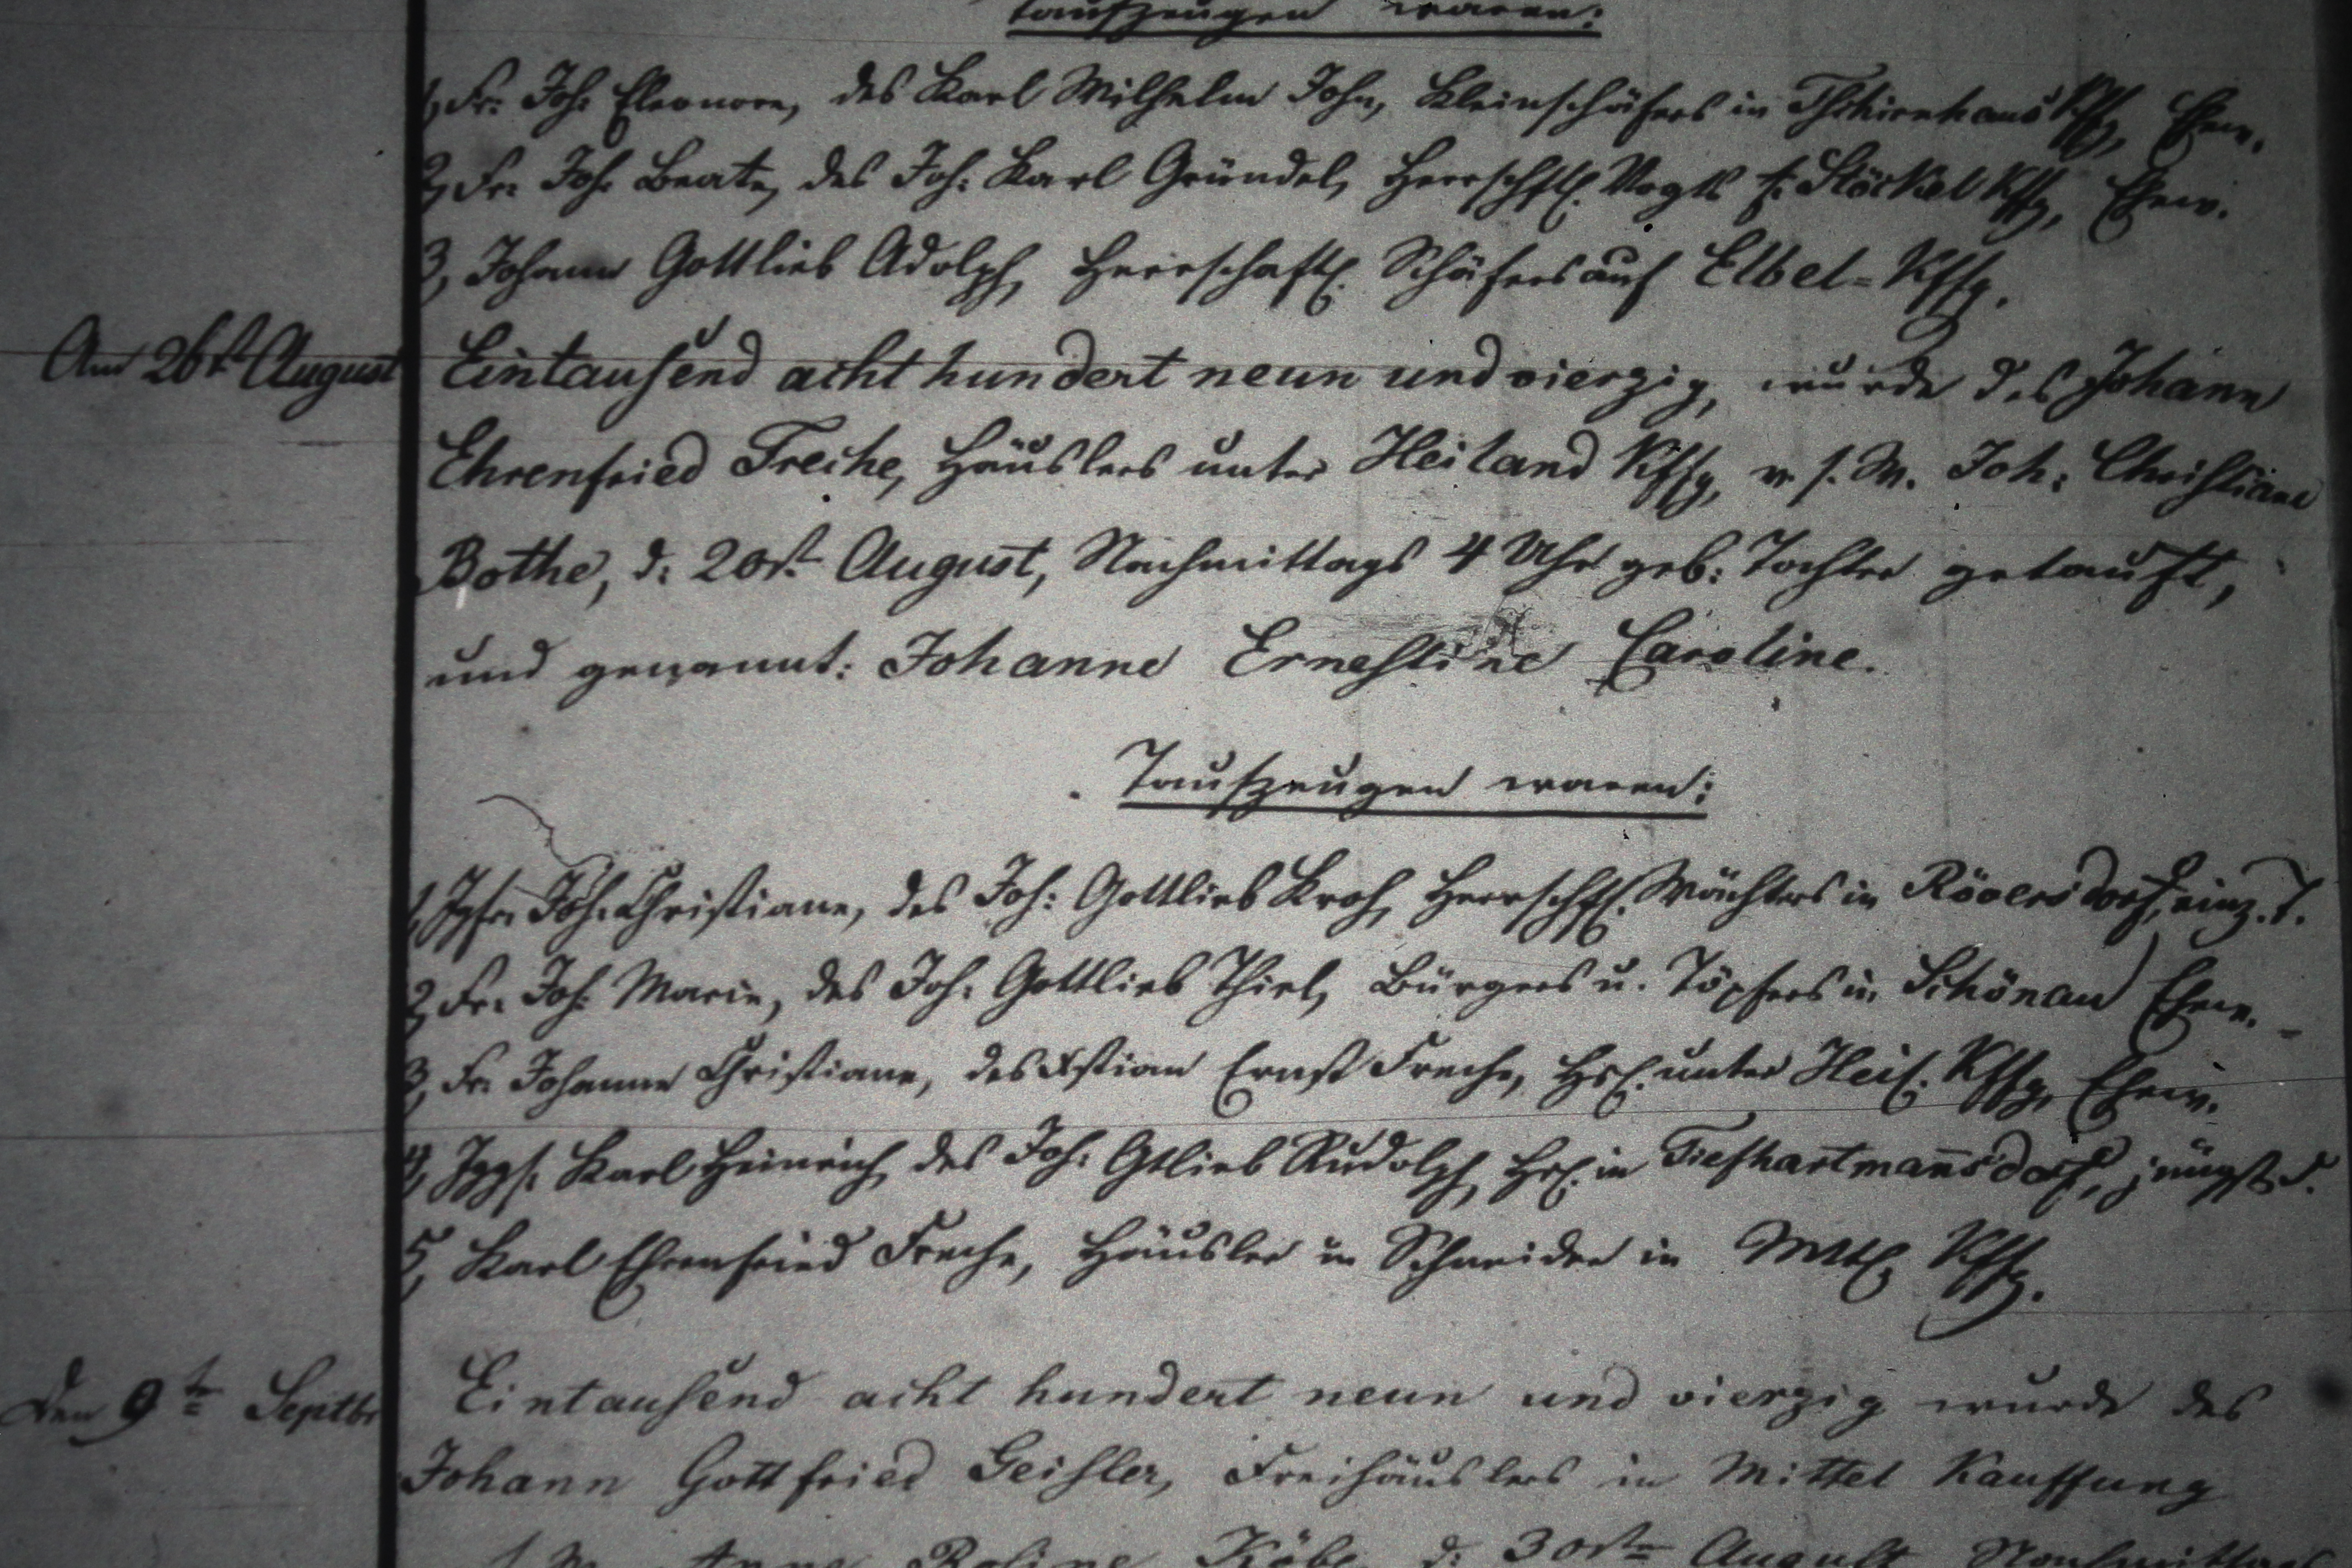 Taufzeugen waren:
1, Fr: Joh: Eleonore, des Karl Wilhelm John, Kleinschäfers in Tschirnhaus Kffg, Ehew.
2, Fr: Joh: Beate, des Joh: Karl Gründel, Herrschftl. Vogts Stöckel Kffg, Ehew.
3, Johann Gottlieb Adolph, Herrschaftl. Schäfers auf Elbel=Kffg.
Am 26st August
Eintausend acht hundert neun und vierzig, wurde des Johann
Ehrenfried Freche, Häuslers unter Heiland Kffg, v. s. W. Joh: Christiane
Bothe, d: 20st August, Nachmittags 4 Uhr geb: Tochter getauft,
und genannt: Johanne Ernestine Caroline.
Taufzeugen waren:
1, Jgfr: Joh: Christiane, des Joh: Gottlieb Kroh, Herrschftl. Wächters in Röversdorf, einz. T.
2, Fr: Joh: Marie, des Joh: Gottlieb Thiel, Bürgers u. Töpfers in Schönau Ehew.
3, Fr: Johanne Christiane, des Xstian Ernst Freche, Hsl. unter Heil. Kffg, Ehew.
4, Jggs. Karl Heinrich, des Joh: Gtlieb Rudolph, Hsl. in Tiefhartmannsdorf, jüngst. S.
5, Karl Ehrenfried Freche, Häusler u Schneider in Mttl Kffg.
Den 9te Septbr
Eintausend acht hundert neun und vierzig wurde des
Johann Gottfried Geisler, Freihäuslers in Mittel Kauffung
Anne Rosine d: 30ste August